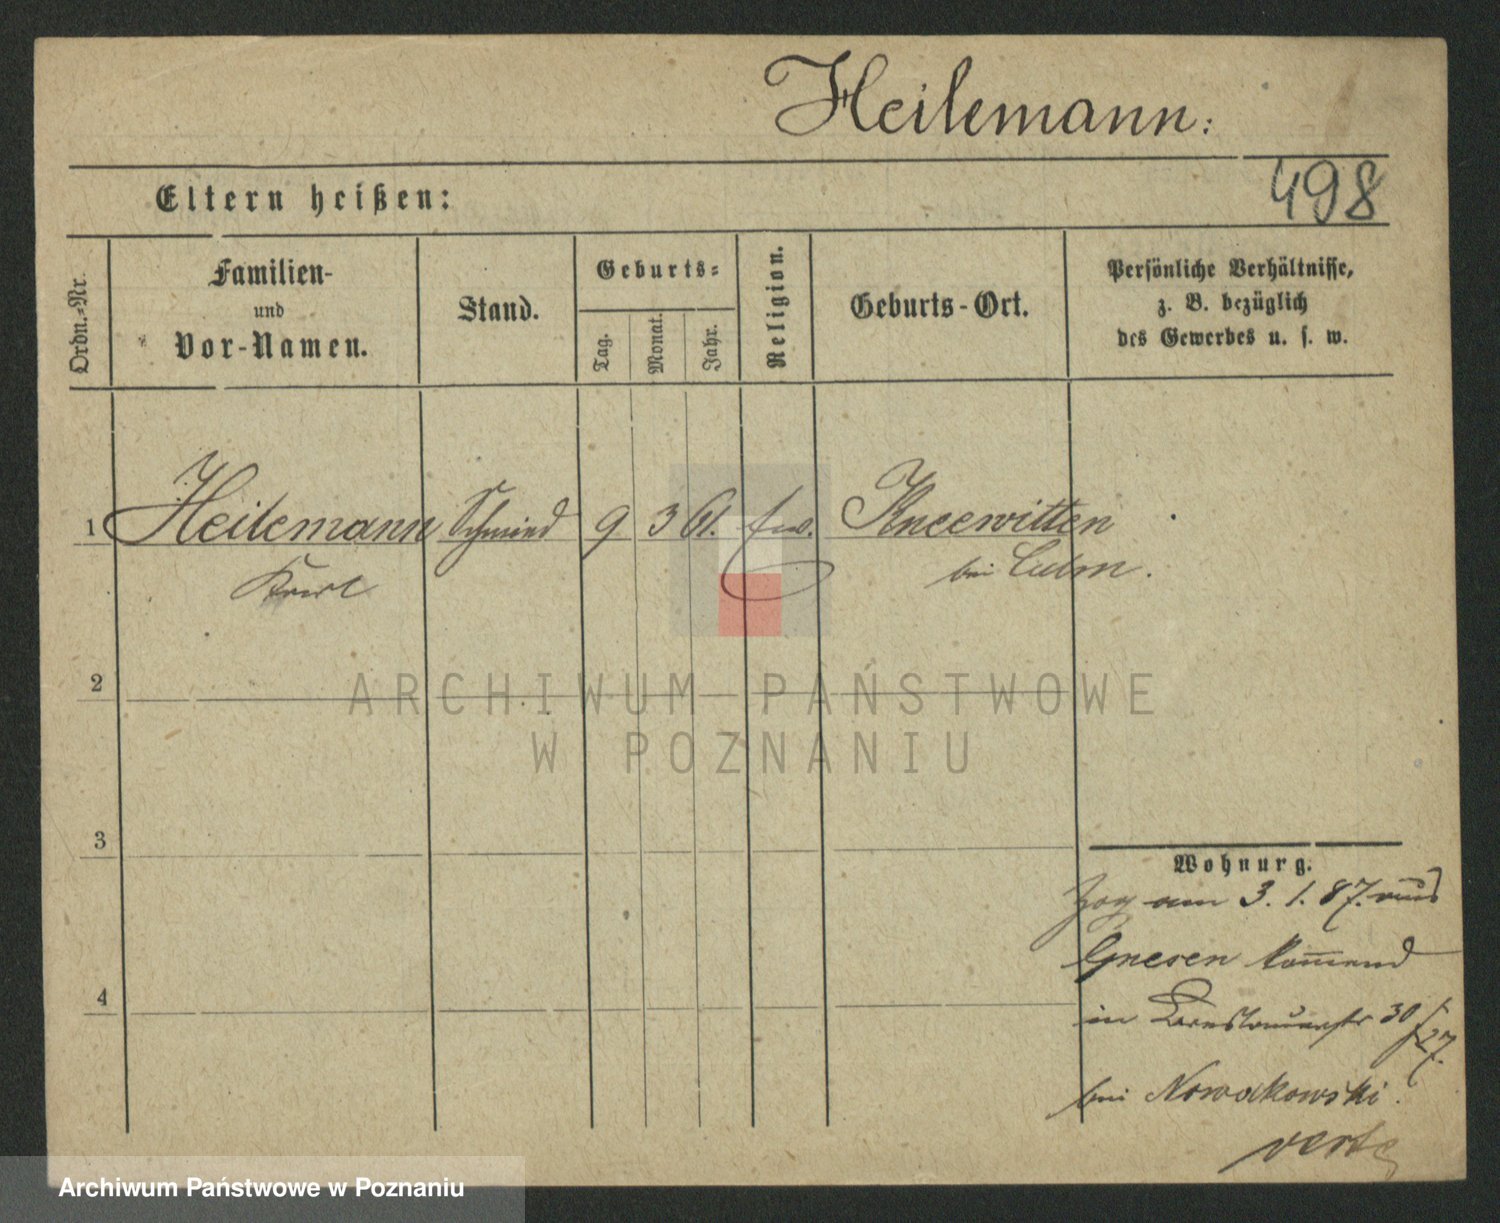 Heilemann:
498
Eltern heißen:
Ordn.-Nr.
Familien-
und
Vor-Namen.
Stand.
Geburts-
Tag.
Monat.
Jahr.
Religion.
Geburts-Ort.
Persönliche Verhältnisse,
z. B. bezüglich
des Gewerbes u. s. w.
1 Heilemann Schmied 9 3 61. ew. Kneewitten
Karl bei Culm.
2
ARCHIWUM PAŃSTWOWE
W POZNANIU
3
4
Wohnurg.
Zog am 3. 1. 87. aus
Gnesen kommend
in 30/27.
bei Nowakowski.
verte
Archiwum Państwowe w Poznaniu